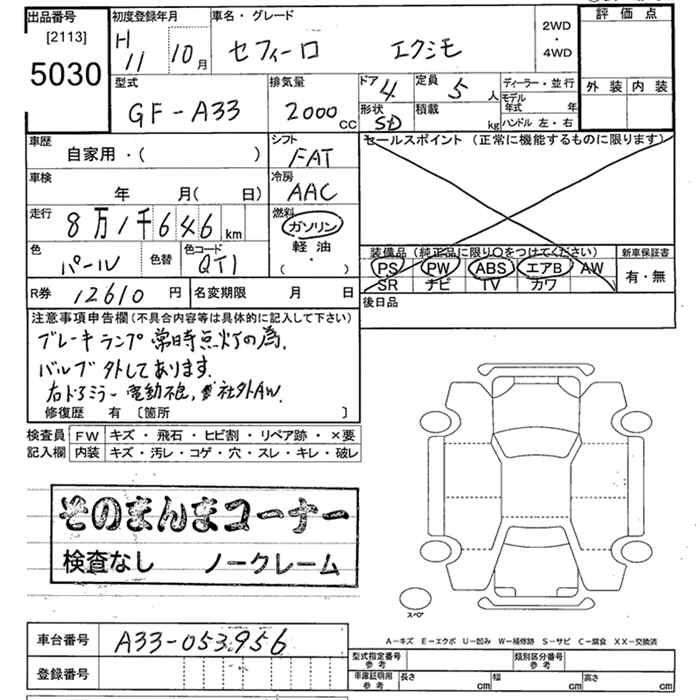 出品番号
[2113]
5030
初度登録年月
H 11 10月
車名・グレード
セフィーロ エクシモ
2WD
・
4WD
評価点
外装 内装
型式
GF-A33
排気量
2000cc
ドア 4
定員 5人
形状 SD
積載 kg
ディーラー・並行
モデル年式 年
ハンドル 左・右
車歴
自家用・( )
シフト
FAT
セールスポイント (正常に機能するものに限ります)
車検
年 月( 日)
冷房
AAC
走行
8万1千646km
燃料
ガソリン
軽油
( ・ )
色
パール
色替
色コード
QT1
装備品 (純正品に限り〇をつけてください)
PS PW ABS エアB AW
SR ナビ TV カワ
新車保証書
有・無
R券 12610円
名変期限 月 日
後日品
注意事項申告欄(不具合内容等は具体的に記入して下さい)
ブレーキランプ常時点灯の為、
バルブ外してあります。
右ドアミラー電動不良, 社外AW.
修復歴 有 〔箇所 〕
検査員 FW キズ・飛石・ヒビ割・リペア跡・×要
記入欄 内装 キズ・汚レ・コゲ・穴・スレ・キレ・破レ
そのまんまコーナー
検査なし ノークレーム
スペア
A-キズ E-エクボ U-凹み W-補修跡 S-サビ C-腐食 XX-交換済
車台番号 A33-053956
登録番号
型式指定番号 参考
類別区分番号 参考
車庫証明用 参考
長さ cm
幅 cm
高さ cm